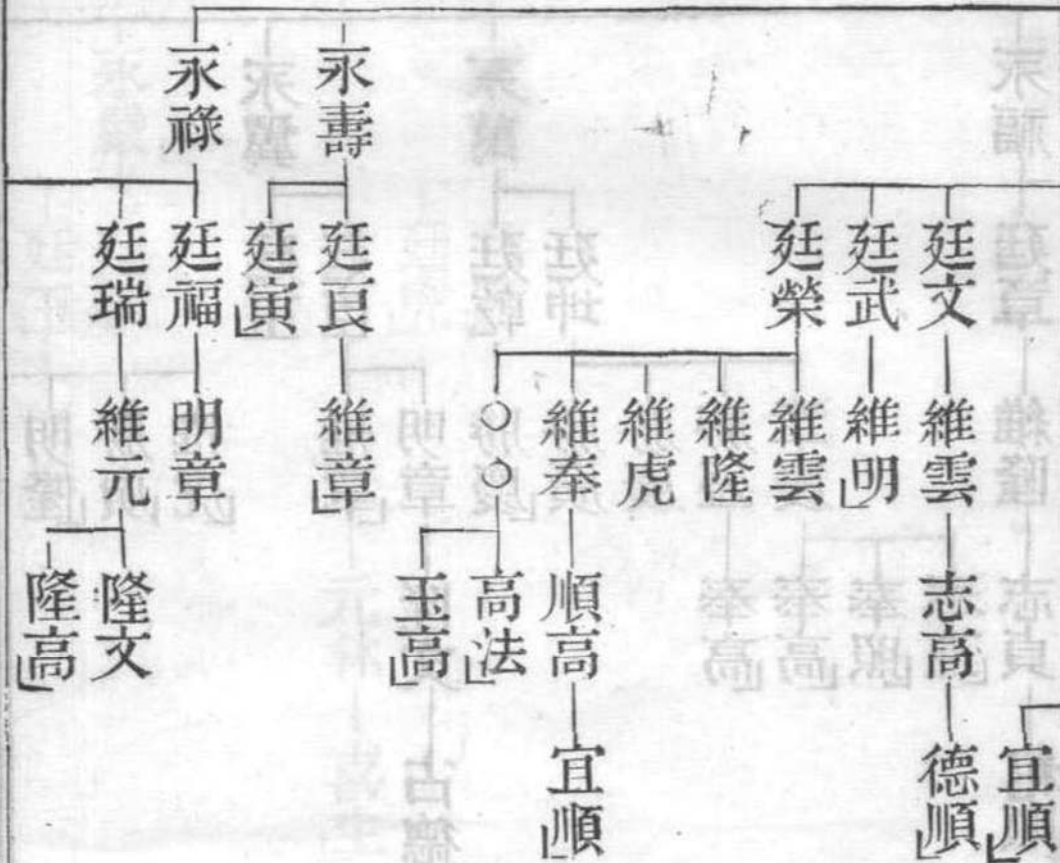 永壽
永祿
廷文
廷武
廷榮
廷良
廷寅
廷福
廷瑞
維雲
維明
維雲
維隆
維虎
維奉
○○
維章
明章
維元
志高
順高
高法
玉高
隆文
隆高
宜順
德順
宜順